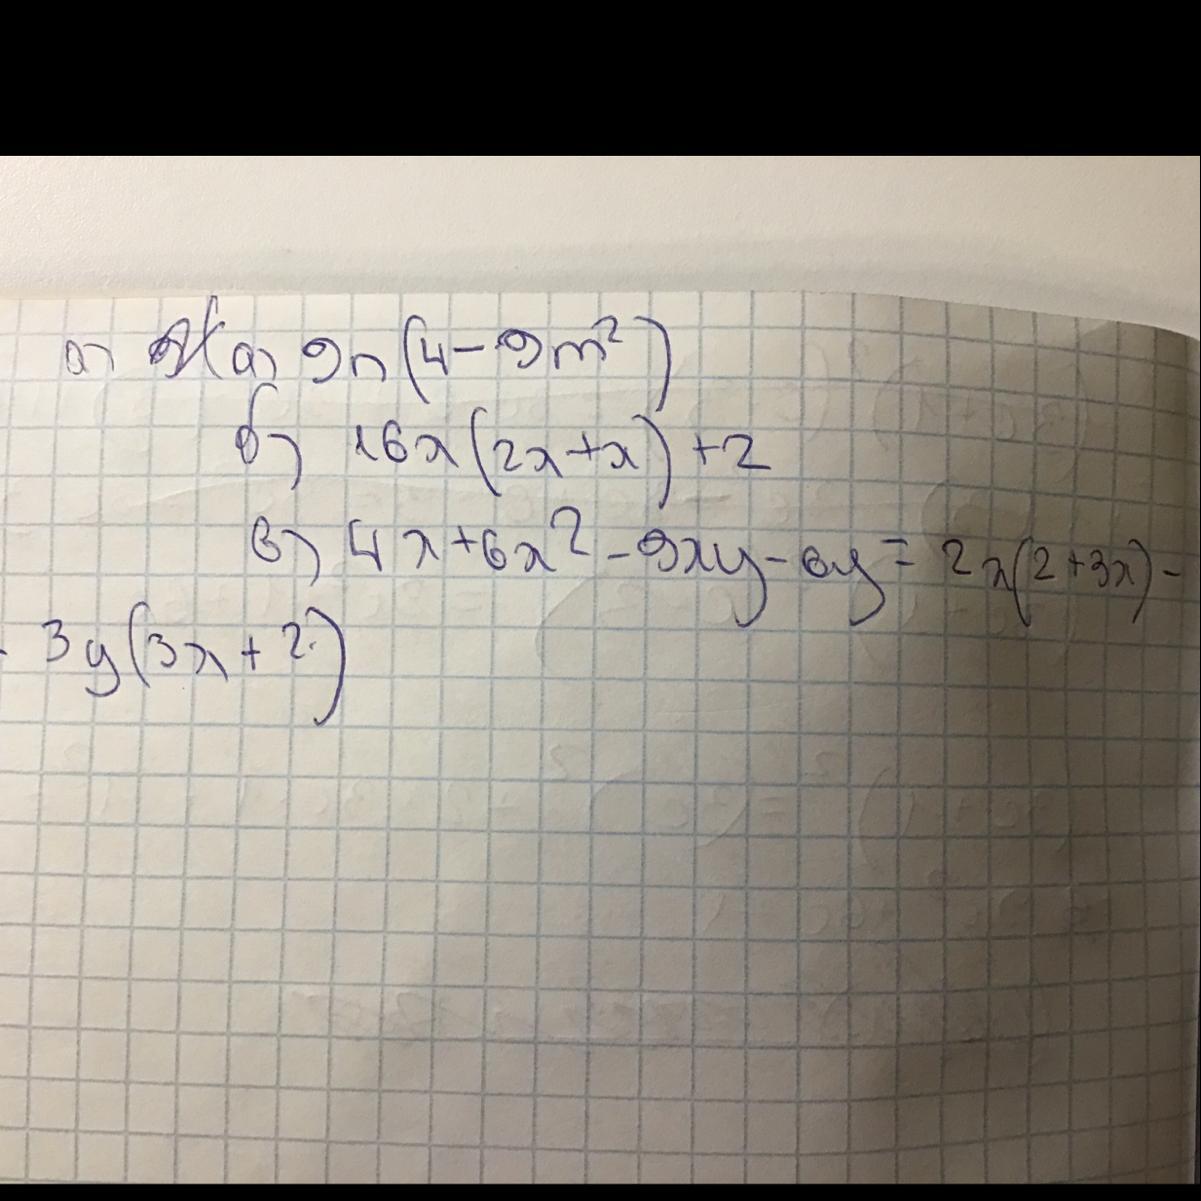 а) а) 9n(4-9m²)
б) 16x(2x+x)+2
в) 4x+6x²-9xy-6y=2x(2+3x)-
- 3y(3x+2)